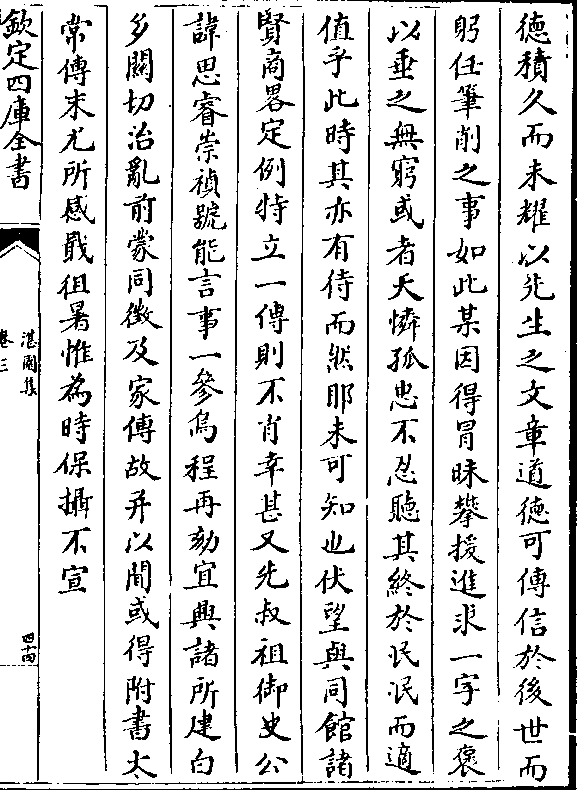 德積久而未耀以先生之文章道德可傳信於後世而
躬任筆削之事如此某因得冒昧攀援進求一字之褒
以垂之無窮或者天憐孤忠不忍聽其終於民泯而適
值乎此時其亦有待而然耶未可知也伏望與同館諸
賢商畧定例特立一傳則不肖幸甚又先叔祖御史公
諱思睿崇禎號能言事一參烏程再劾宜興諸所建白
多關切治亂前蒙同徵及家傳故并以間或得附書太
常傳末尤所感戢徂暑惟為時保攝不宣
欽定四庫全書
湛園集
卷三
四十四